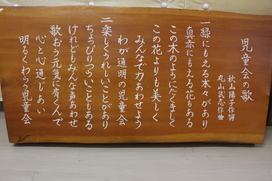 児童会の歌
秋山陽子作詞
丸山武志作曲
一 緑にもえる木々があり
真赤にもえる花もある
この木のようにたくましく
この花よりも美しく
みんなで力あわせよう
わが通明の児童会
二 楽しくうれしいことがあり
ちょっぴりつらいこともある
けれどもみんな声あわせ
歌おう元気に育くんで
心と心通じあい
明るくわらう児童会